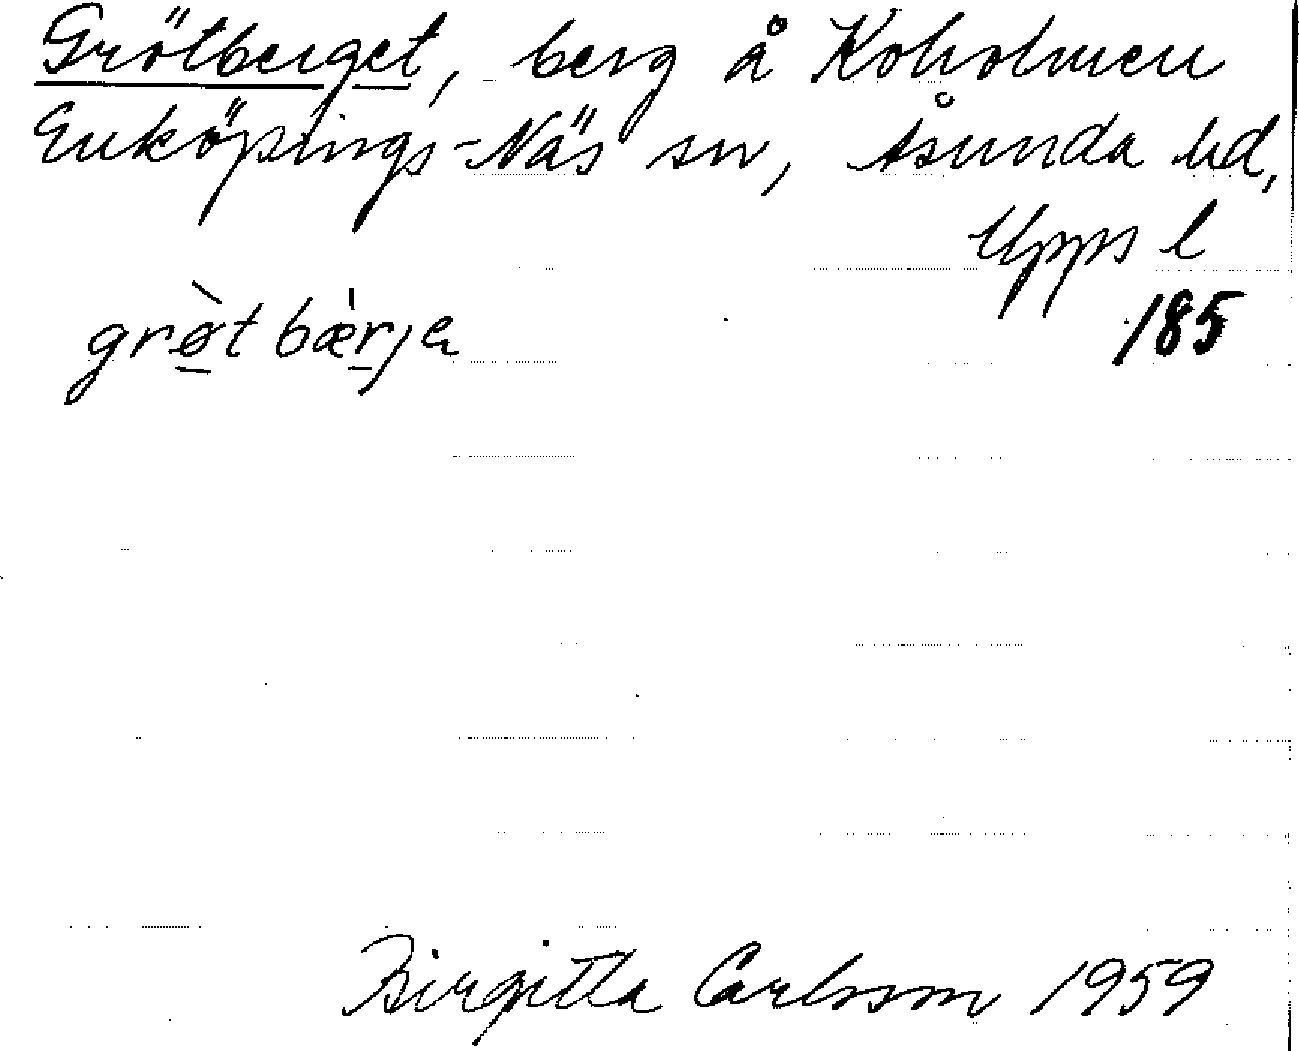 Grötberget, berg å Koholmen
Enköpings-Näs sn, Åsunda hd,
Upps l
grø̀t bæ̀rja
185
Birgitta Carlsson 1959